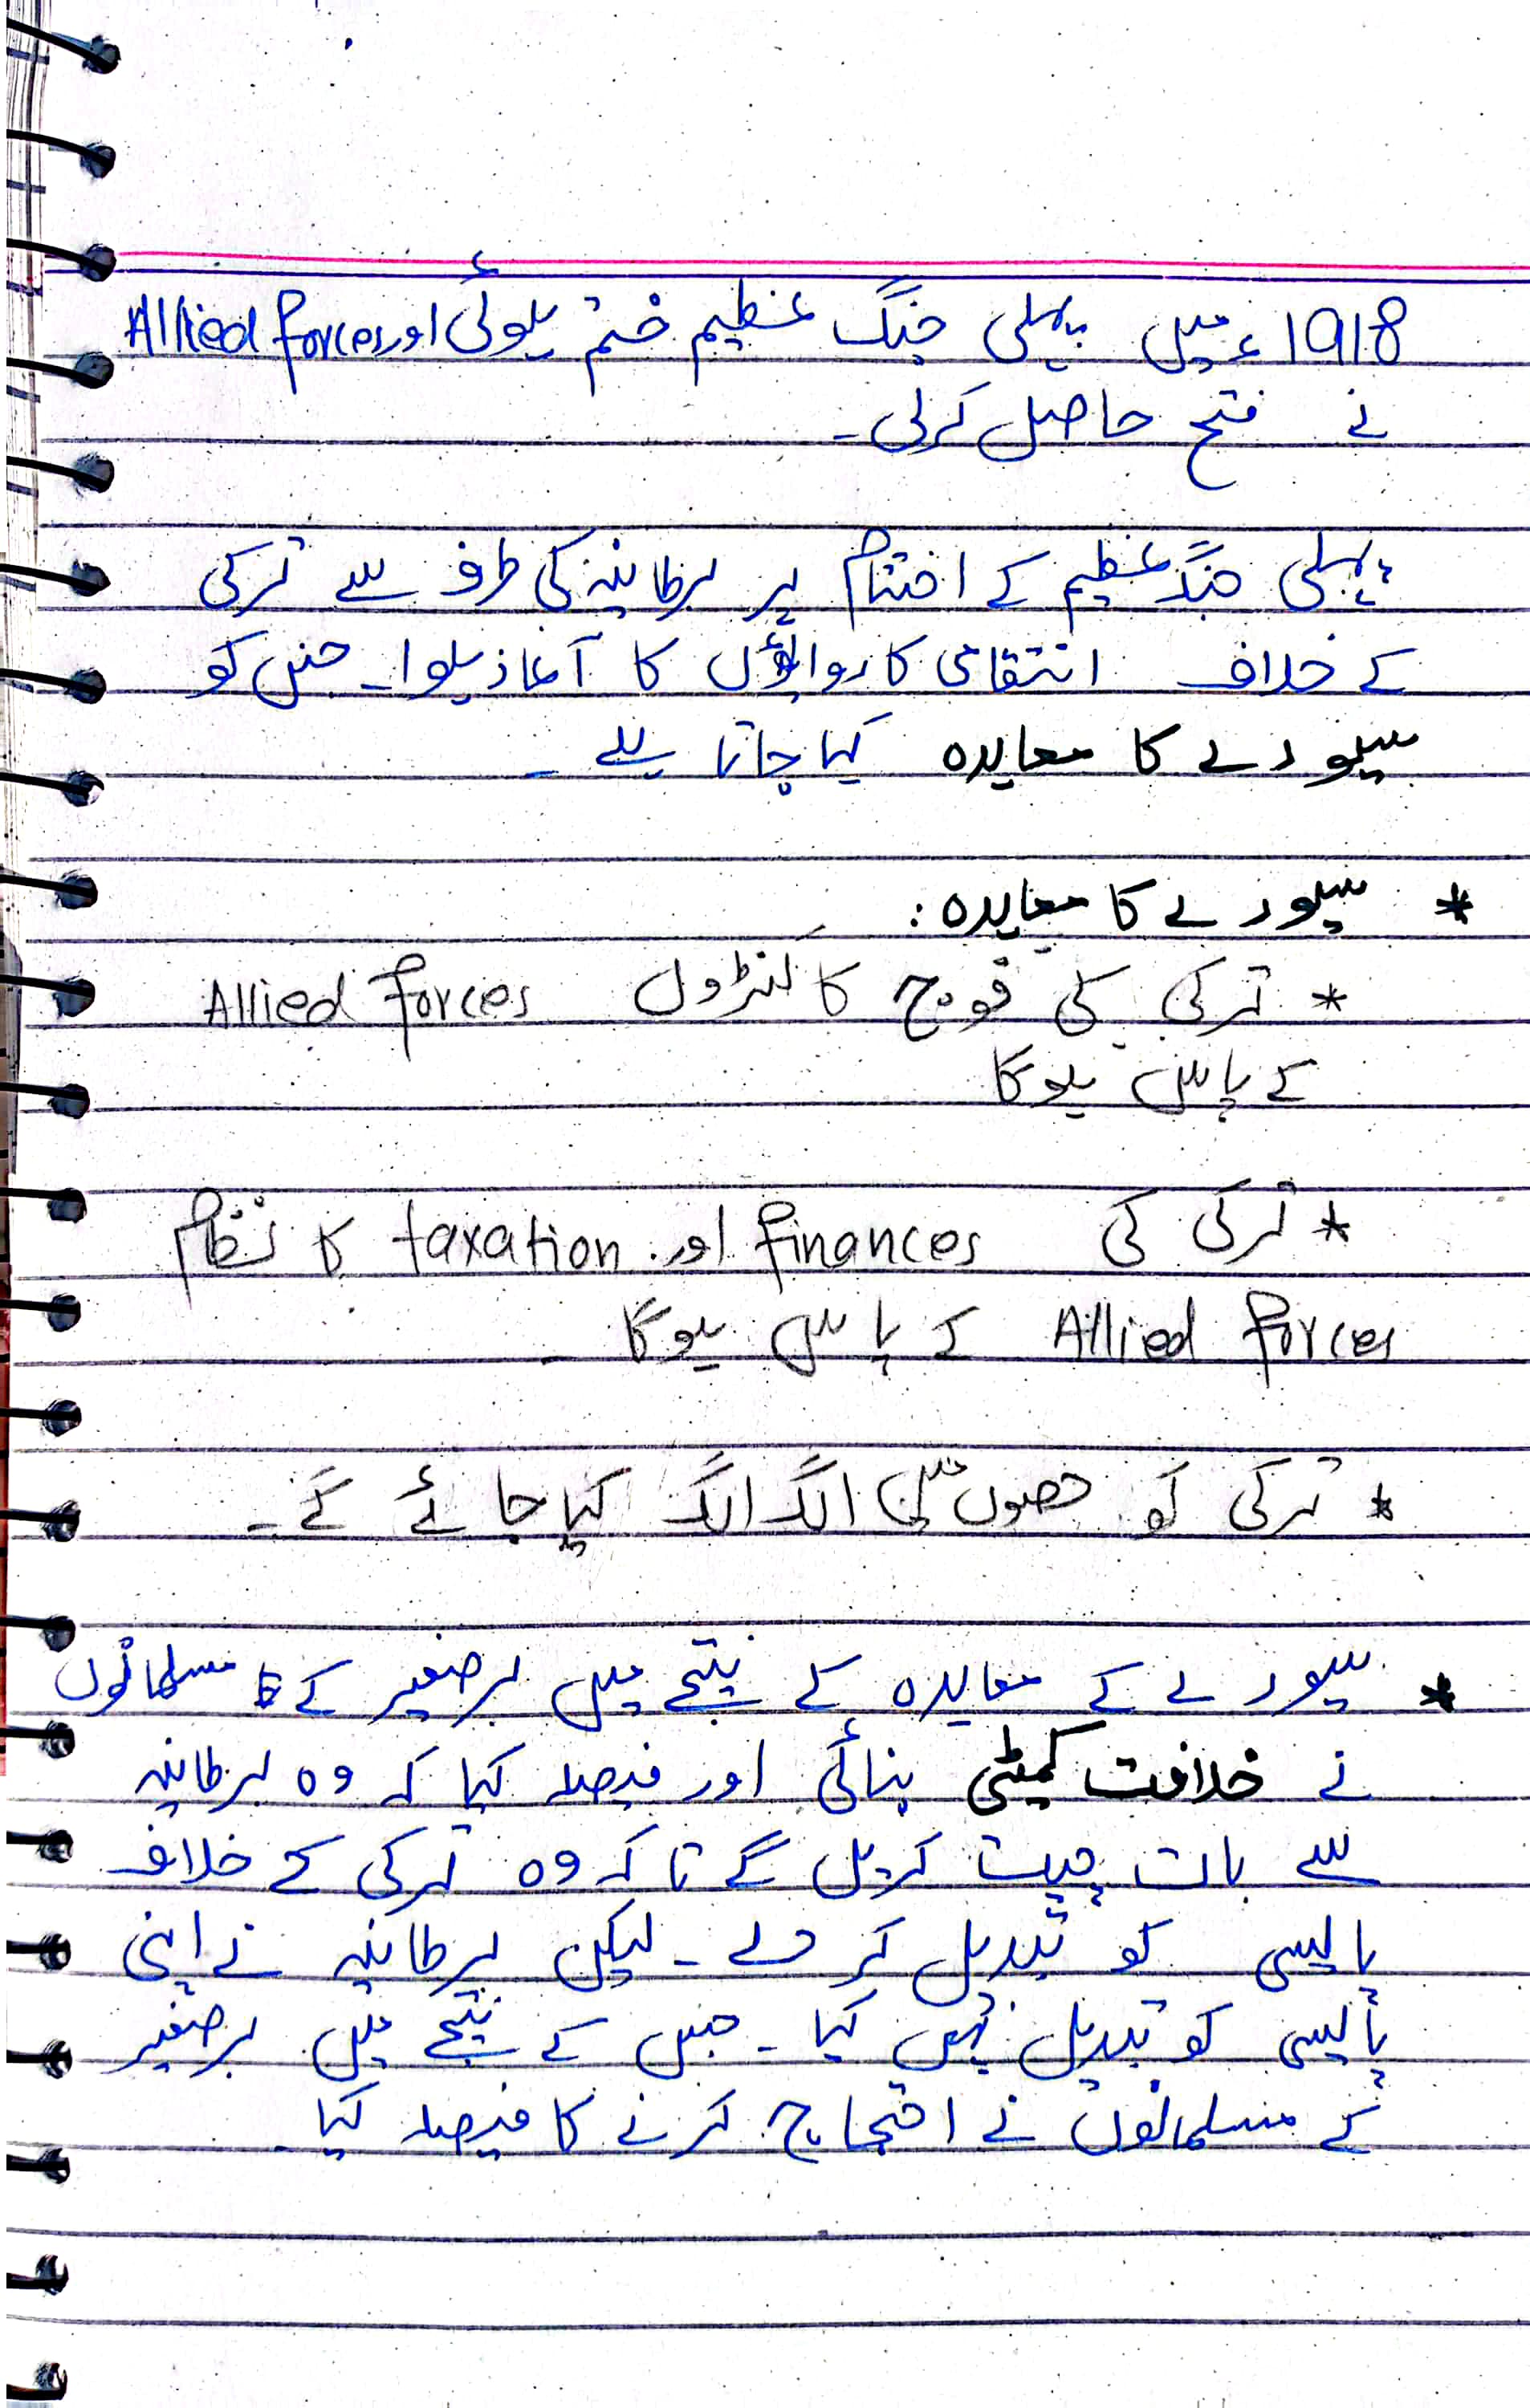 1918ء میں پہلی جنگ عظیم ختم ہوئی اور Allied forces
نے فتح حاصل کرلی۔
پہلی جنگ عظیم کے اختتام پر برطانیہ کی طرف سے ترکی
کے خلاف انتقامی کاروائیوں کا آغاز ہوا۔ جس کو
سیورے کا معاہدہ کہا جاتا ہے۔
* سیورے کا معاہدہ:
* ترکی کی فوج کا کنٹرول Allied Forces
کے پاس ہوگا
* ترکی کی finances اور taxation کا نظام
Allied forces کے پاس ہوگا۔
* ترکی کو حصوں میں الگ الگ کیا جائے گے۔
* سیورے کے معاہدہ کے نتیجے میں برصغیر کے مسلمانوں
نے خلافت کمیٹی بنائی اور فیصلہ کیا کہ وہ برطانیہ
سے بات چیت کریں گے تا کہ وہ ترکی کے خلاف
پالیسی کو تبدیل کر دے۔ لیکن برطانیہ نے اپنی
پالیسی کو تبدیل نہیں کیا۔ جس کے نتیجے میں برصغیر
کے مسلمانوں نے احتجاج کرنے کا فیصلہ کیا۔